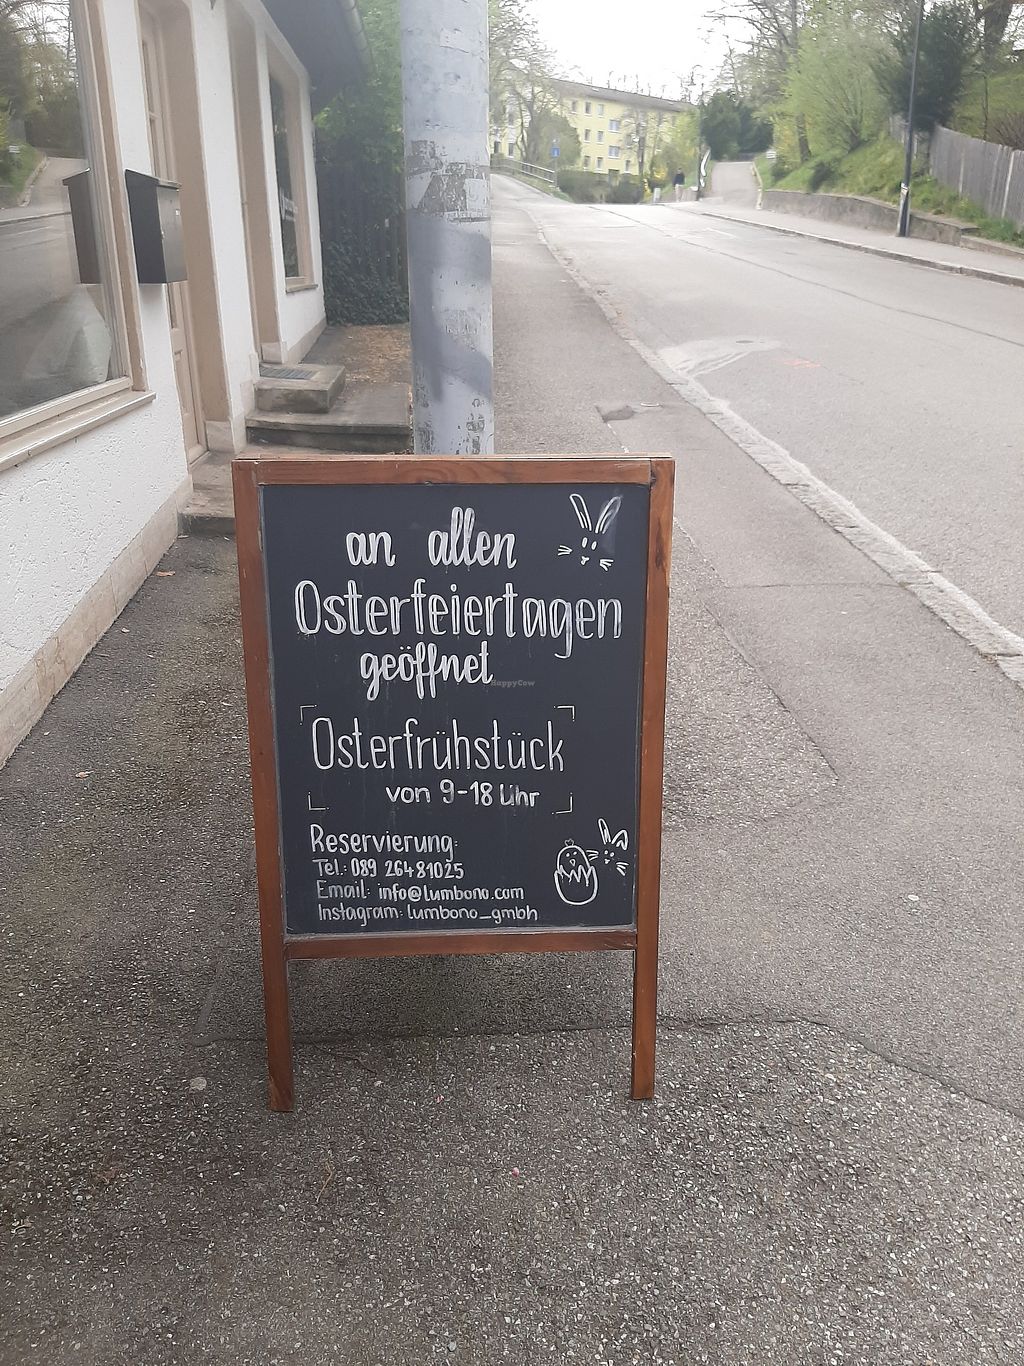 an allen
Osterfeiertagen
geöffnet
HappyCow
Osterfrühstück
von 9-18 Uhr
Reservierung:
Tel.: 089 26481025
Email: info@lumbono.com
Instagram: lumbono_gmbh